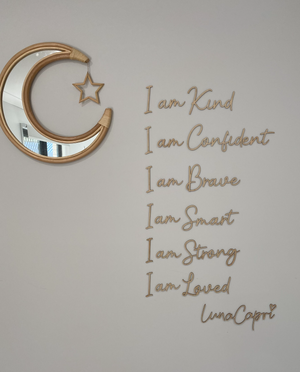 I am Kind
I am Confident
I am Brave
I am Smart
I am Strong
I am Loved
LunaCapri